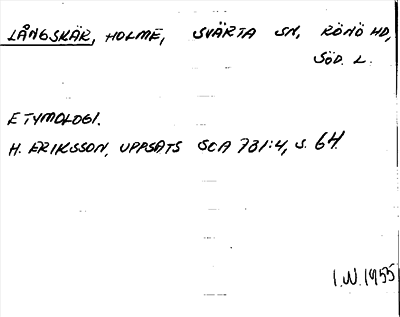 LÅNGSKÄR, HOLME, SVÄRTA SN, RÖNÖ HD,
SÖD. L.
ETYMOLOGI.
H. ERIKSSON, UPPSATS SOA 781:4, S. 64.
I.W. 1955